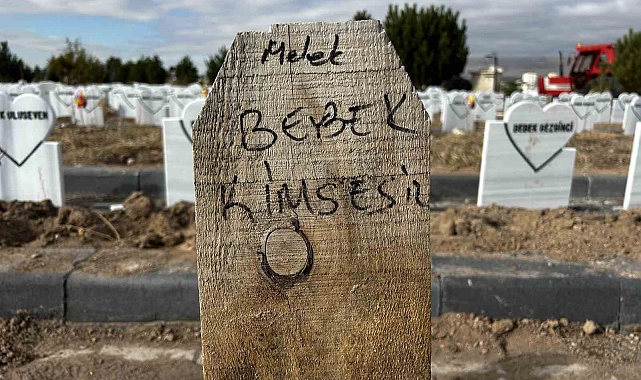 Melek
BEBEK
KİMSESİZ
K ULUSEVEN
BEBEK GEZGİNCİ